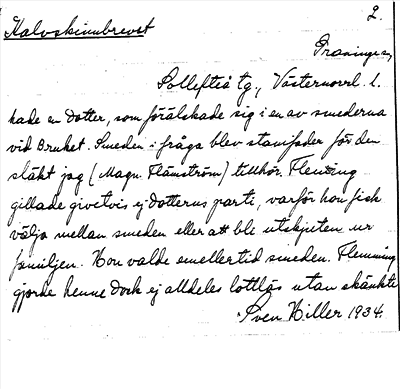 Kalvskinnbrevet 2.
Graninge sn,
Sollefteå tg., Västernorrl. l.
hade en dotter, som förälskade sig i en av smederna
vid Bruket. Smeden i fråga blev stamfader för den
släkt jag (Magn. Flämström) tillhör. Flemming
gillade givetvis ej dotterns parti, varför hon fick
välja mellan smeden eller att ble utskjuten ur
familjen. Hon valde emellertid smeden. Flemming
gjorde henne dock ej alldeles lottlös utan skänkte
Sven Hiller 1934.